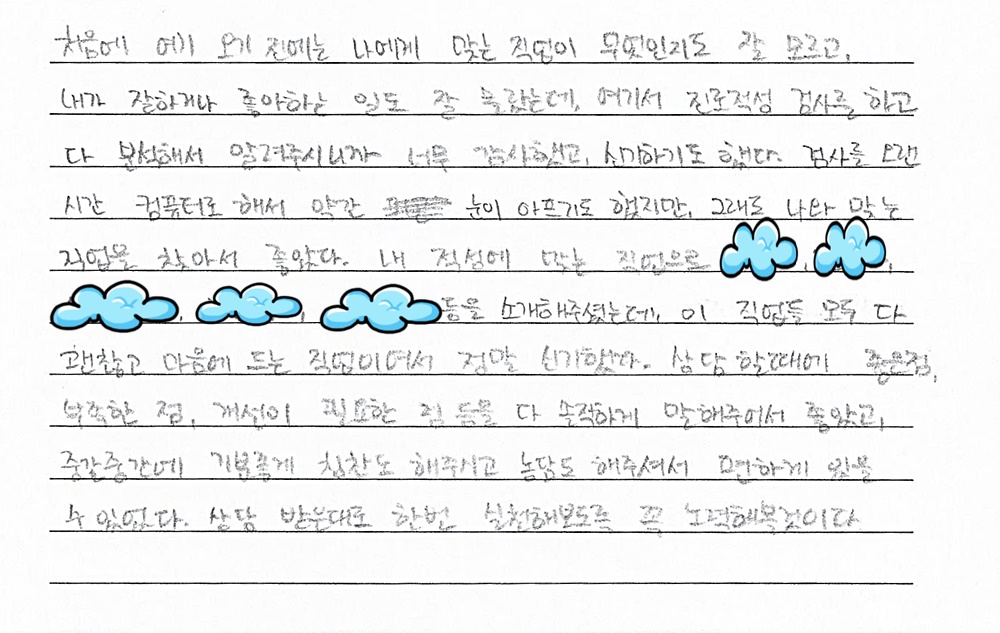 처음에 여기 오기 전에는 나에게 맞는 직업이 무엇인지도 잘 모르고,
내가 잘하거나 좋아하는 일도 잘 몰랐는데, 여기서 진로적성 검사를 하고
다 분석해서 알려주시니까 너무 감사했고, 신기하기도 했다. 검사를 오랜
시간 컴퓨터로 해서 약간 눈이 아프기도 했지만, 그래도 나와 맞는
직업을 찾아서 좋았다. 내 적성에 맞는 직업으로 , ,
, , 등을 소개해주셨는데, 이 직업들 모두 다
괜찮고 마음에 드는 직업이여서 정말 신기했다. 상담 할때에 좋은점,
부족한 점, 개선이 필요한 점 등을 다 솔직하게 말해주어서 좋았고,
중간중간에 기분좋게 칭찬도 해주시고 농담도 해주셔서 편하게 있을
수 있었다. 상담 받은대로 한번 실천해보도록 꼭 노력해볼것이다